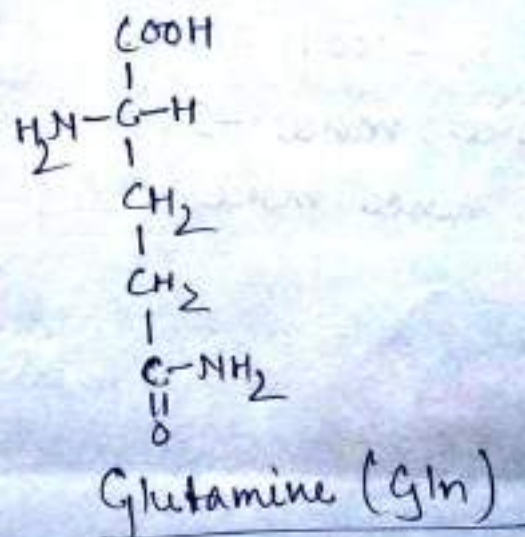 COOH
|
H2N-C-H
|
CH2
|
CH2
|
C-NH2
||
O
Glutamine (Gln)